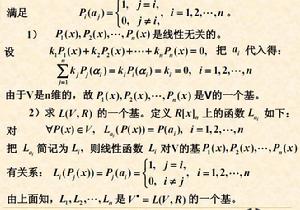 满足 P_i(a_j) = { 1, j=i, 0, j≠i, i=1,2,⋯,n 。
1） P_1(x), P_2(x), ⋯, P_n(x) 是线性无关的。
设 k_1P_1(x)+k_2P_2(x)+⋯+k_nP_n(x)=0, 把 a_i 代入得:
∑_{j=1}^{n} k_jP_j(a_i)=k_iP_i(a_i)=k_i=0, i=1,2,⋯,n
由于V是n维的，故 P_1(x), P_2(x), ⋯, P_n(x) 是V的一个基。
2）求 L(V,R) 的一个基。定义 R[x]_n 上的函数 L_{a_i} 如下:
对 ∀P(x)∈V, L_{a_i}(P(x))=P(a_i), i=1,2,⋯,n
把 L_{a_i} 简记为 L_i，则线性函数 L_i 对V的基 P_1(x), P_2(x), ⋯, P_n(x)
有关系: L_i(P_j(x))=P_j(a_i)= { 1, j=i, 0, i≠j , i=1,2,⋯,n
由上面知, L_1, L_2, ⋯, L_n 是 V*=L(V,R) 的一个基。